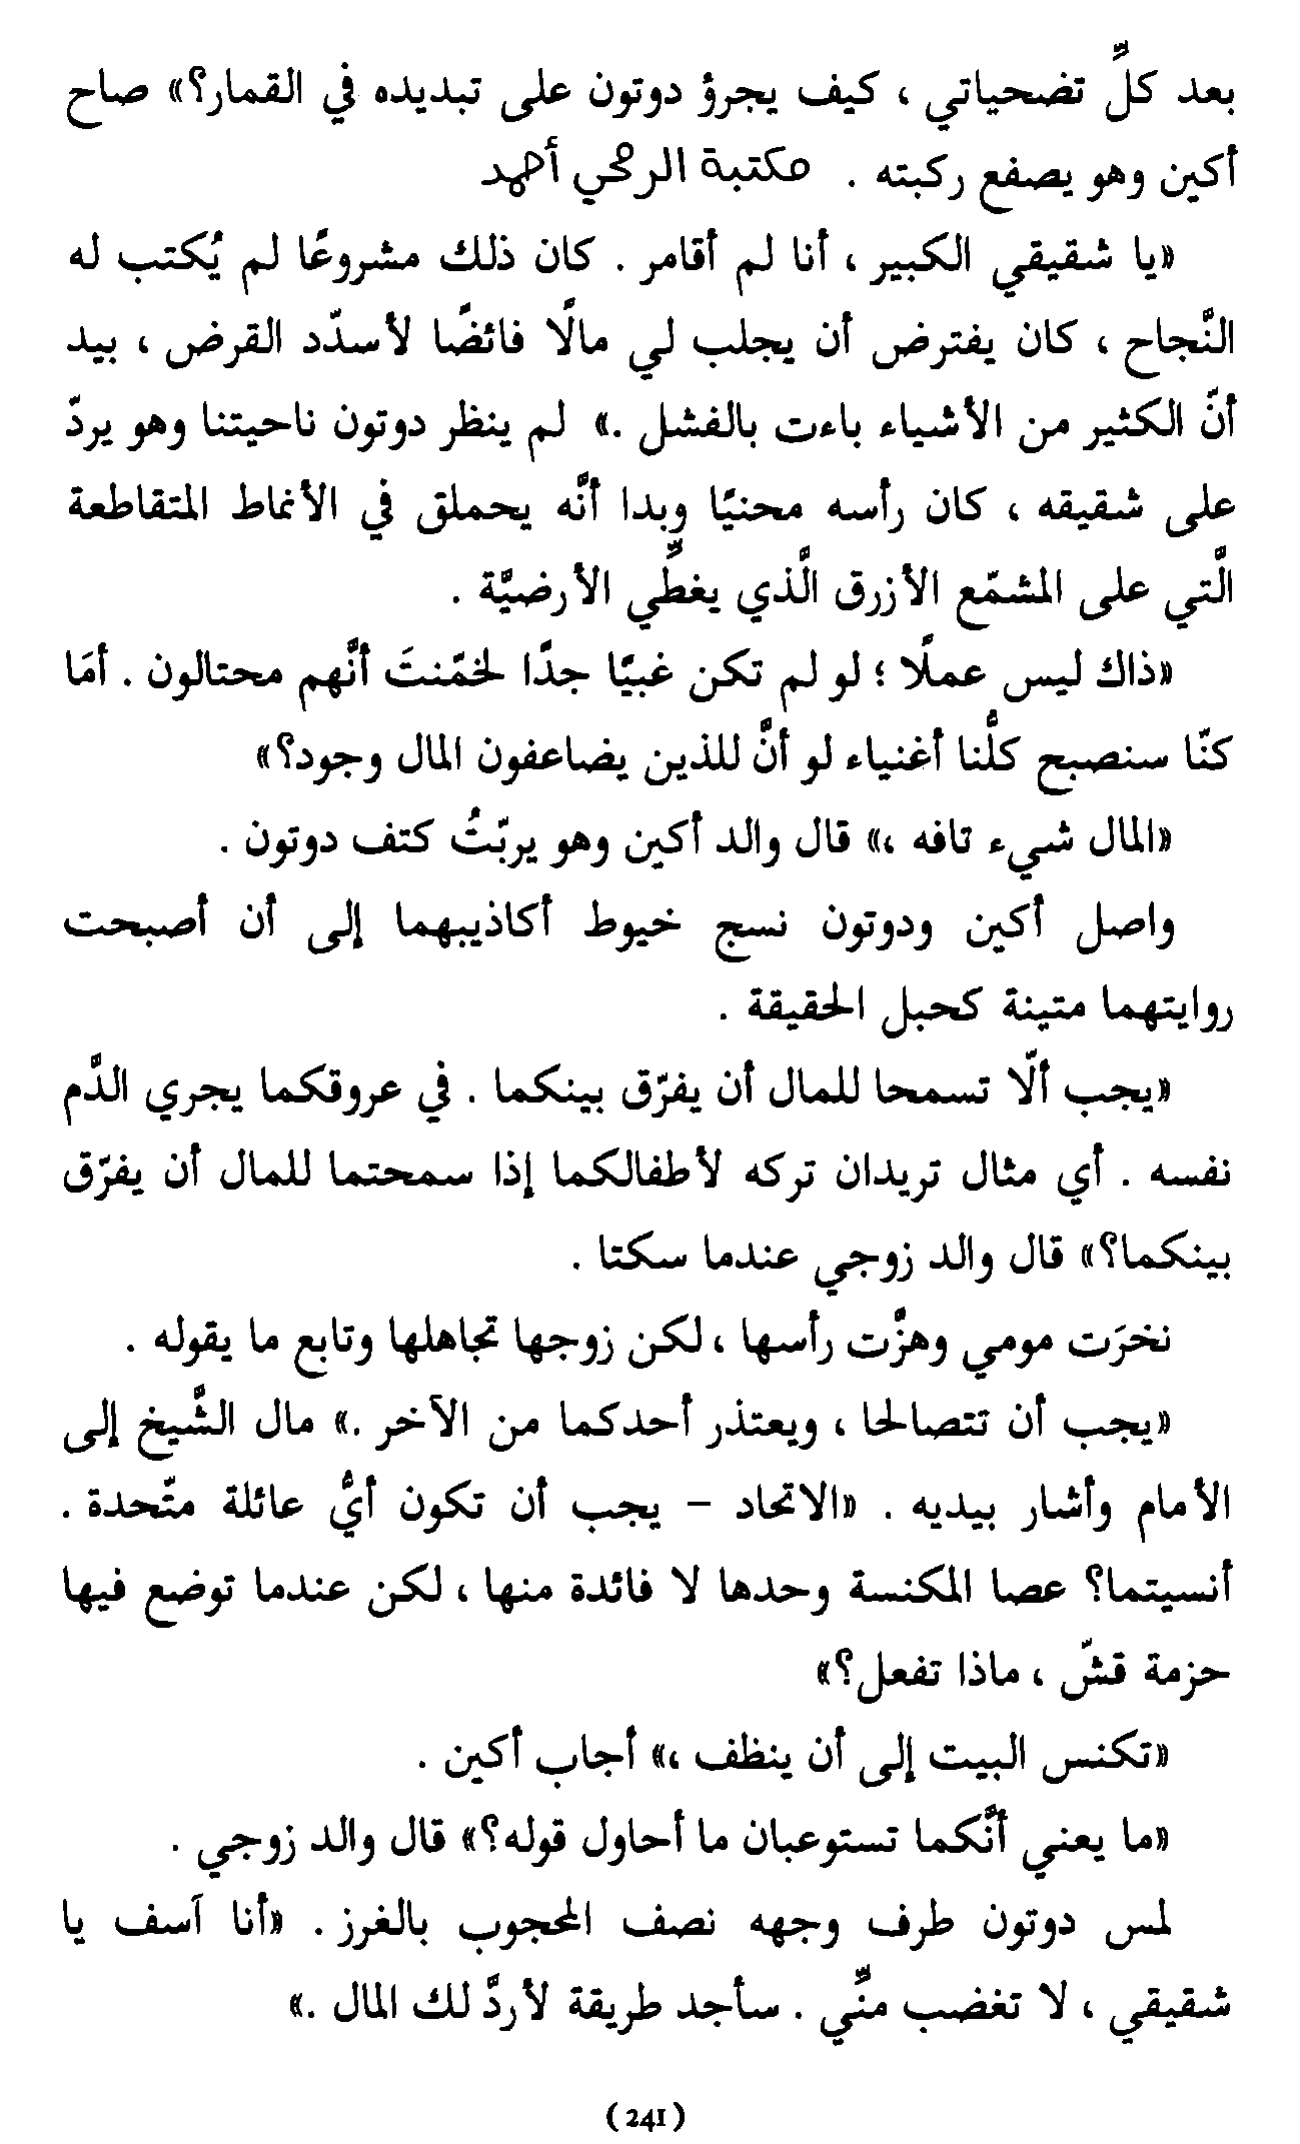 بعد كلِّ تضحياتي ، كيف يجرؤ دوتون على تبديده في القمار؟» صاح
أكين وهو يصفع ركبته . مكتبة الرمحي أحمد
«يا شقيقي الكبير ، أنا لم أقامر . كان ذلك مشروعًا لم يُكتب له
النَّجاح ، كان يفترض أن يجلب لي مالًا فائضًا لأسدّد القرض ، بيد
أنّ الكثير من الأشياء باءت بالفشل .» لم ينظر دوتون ناحيتنا وهو يردّ
على شقيقه ، كان رأسه محنيًا وبدا أنَّه يحملق في الأنماط المتقاطعة
الَّتي على المشمّع الأزرق الَّذي يغطِّي الأرضيَّة .
«ذاك ليس عملًا ؛ لو لم تكن غبيًا جدًّا لخمّنتَ أنَّهم محتالون . أمَا
كنّا سنصبح كلُّنا أغنياء لو أنَّ للذين يضاعفون المال وجود؟»
«المال شيء تافه ،» قال والد أكين وهو يربّتُ كتف دوتون .
واصل أكين ودوتون نسج خيوط أكاذيبهما إلى أن أصبحت
روايتهما متينة كحبل الحقيقة .
«يجب ألّا تسمحا للمال أن يفرّق بينكما . في عروقكما يجري الدَّم
نفسه . أي مثال تريدان تركه لأطفالكما إذا سمحتما للمال أن يفرّق
بينكما؟» قال والد زوجي عندما سكتا .
نخرَت مومي وهزَّت رأسها ، لكن زوجها تجاهلها وتابع ما يقوله .
«يجب أن تتصالحا ، ويعتذر أحدكما من الآخر .» مال الشَّيخ إلى
الأمام وأشار بيديه . «الاتحاد – يجب أن تكون أيُّ عائلة متّحدة .
أنسيتما؟ عصا المكنسة وحدها لا فائدة منها ، لكن عندما توضع فيها
حزمة قشّ ، ماذا تفعل؟»
«تكنس البيت إلى أن ينظف ،» أجاب أكين .
«ما يعني أنَّكما تستوعبان ما أحاول قوله؟» قال والد زوجي .
لمس دوتون طرف وجهه نصف المحجوب بالغرز . «أنا آسف يا
شقيقي ، لا تغضب منِّي . سأجد طريقة لأردَّ لك المال .»
(241)